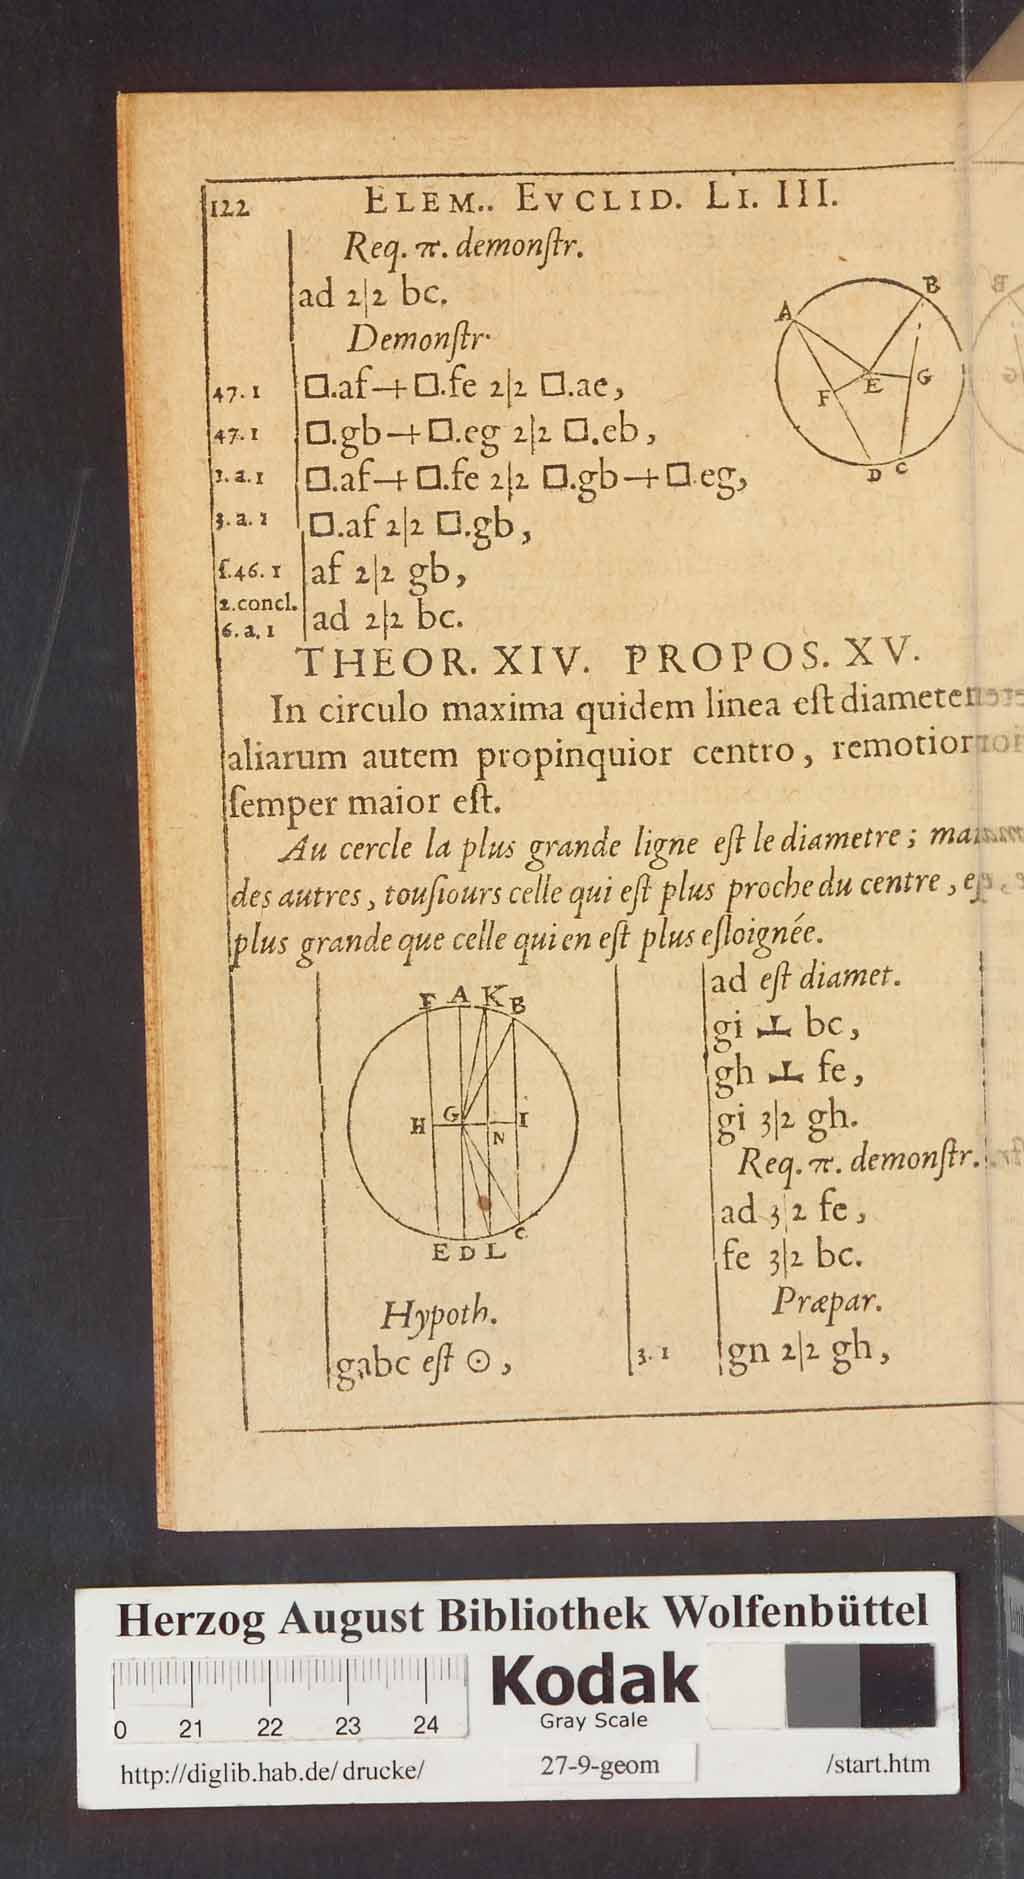 122 ELEM.. EVCLID. LI. III.
Req. π. demonſtr.
ad 2|2 bc.
Demonſtr.
47. 1 □.af+□.fe 2|2 □.ae,
47. 1 □.gb+□.eg 2|2 □.eb,
1. a. 1 □.af+□.fe 2|2 □.gb+□.eg,
3. a. 1 □.af 2|2 □.gb,
ſ.46. 1 af 2|2 gb,
2.concl.
6. a. 1 ad 2|2 bc.
A B E G F D C
THEOR. XIV. PROPOS. XV.
In circulo maxima quidem linea eſt diameter
aliarum autem propinquior centro, remotior
ſemper maior eſt.
Au cercle la plus grande ligne eſt le diametre;
des autres, touſiours celle qui eſt plus proche du centre,
plus grande que celle qui en eſt plus eſloignée.
F A K B
H G N I
E D L C
Hypoth.
gabc eſt ⊙,
ad eſt diamet.
gi ⊥ bc,
gh ⊥ fe,
gi 3|2 gh.
Req. π. demonſtr.
ad 3|2 fe,
fe 3|2 bc.
Præpar.
3. 1 gn 2|2 gh,
Herzog August Bibliothek Wolfenbüttel
Kodak
Gray Scale
0 21 22 23 24
http://diglib.hab.de/drucke/ 27-9-geom /start.htm